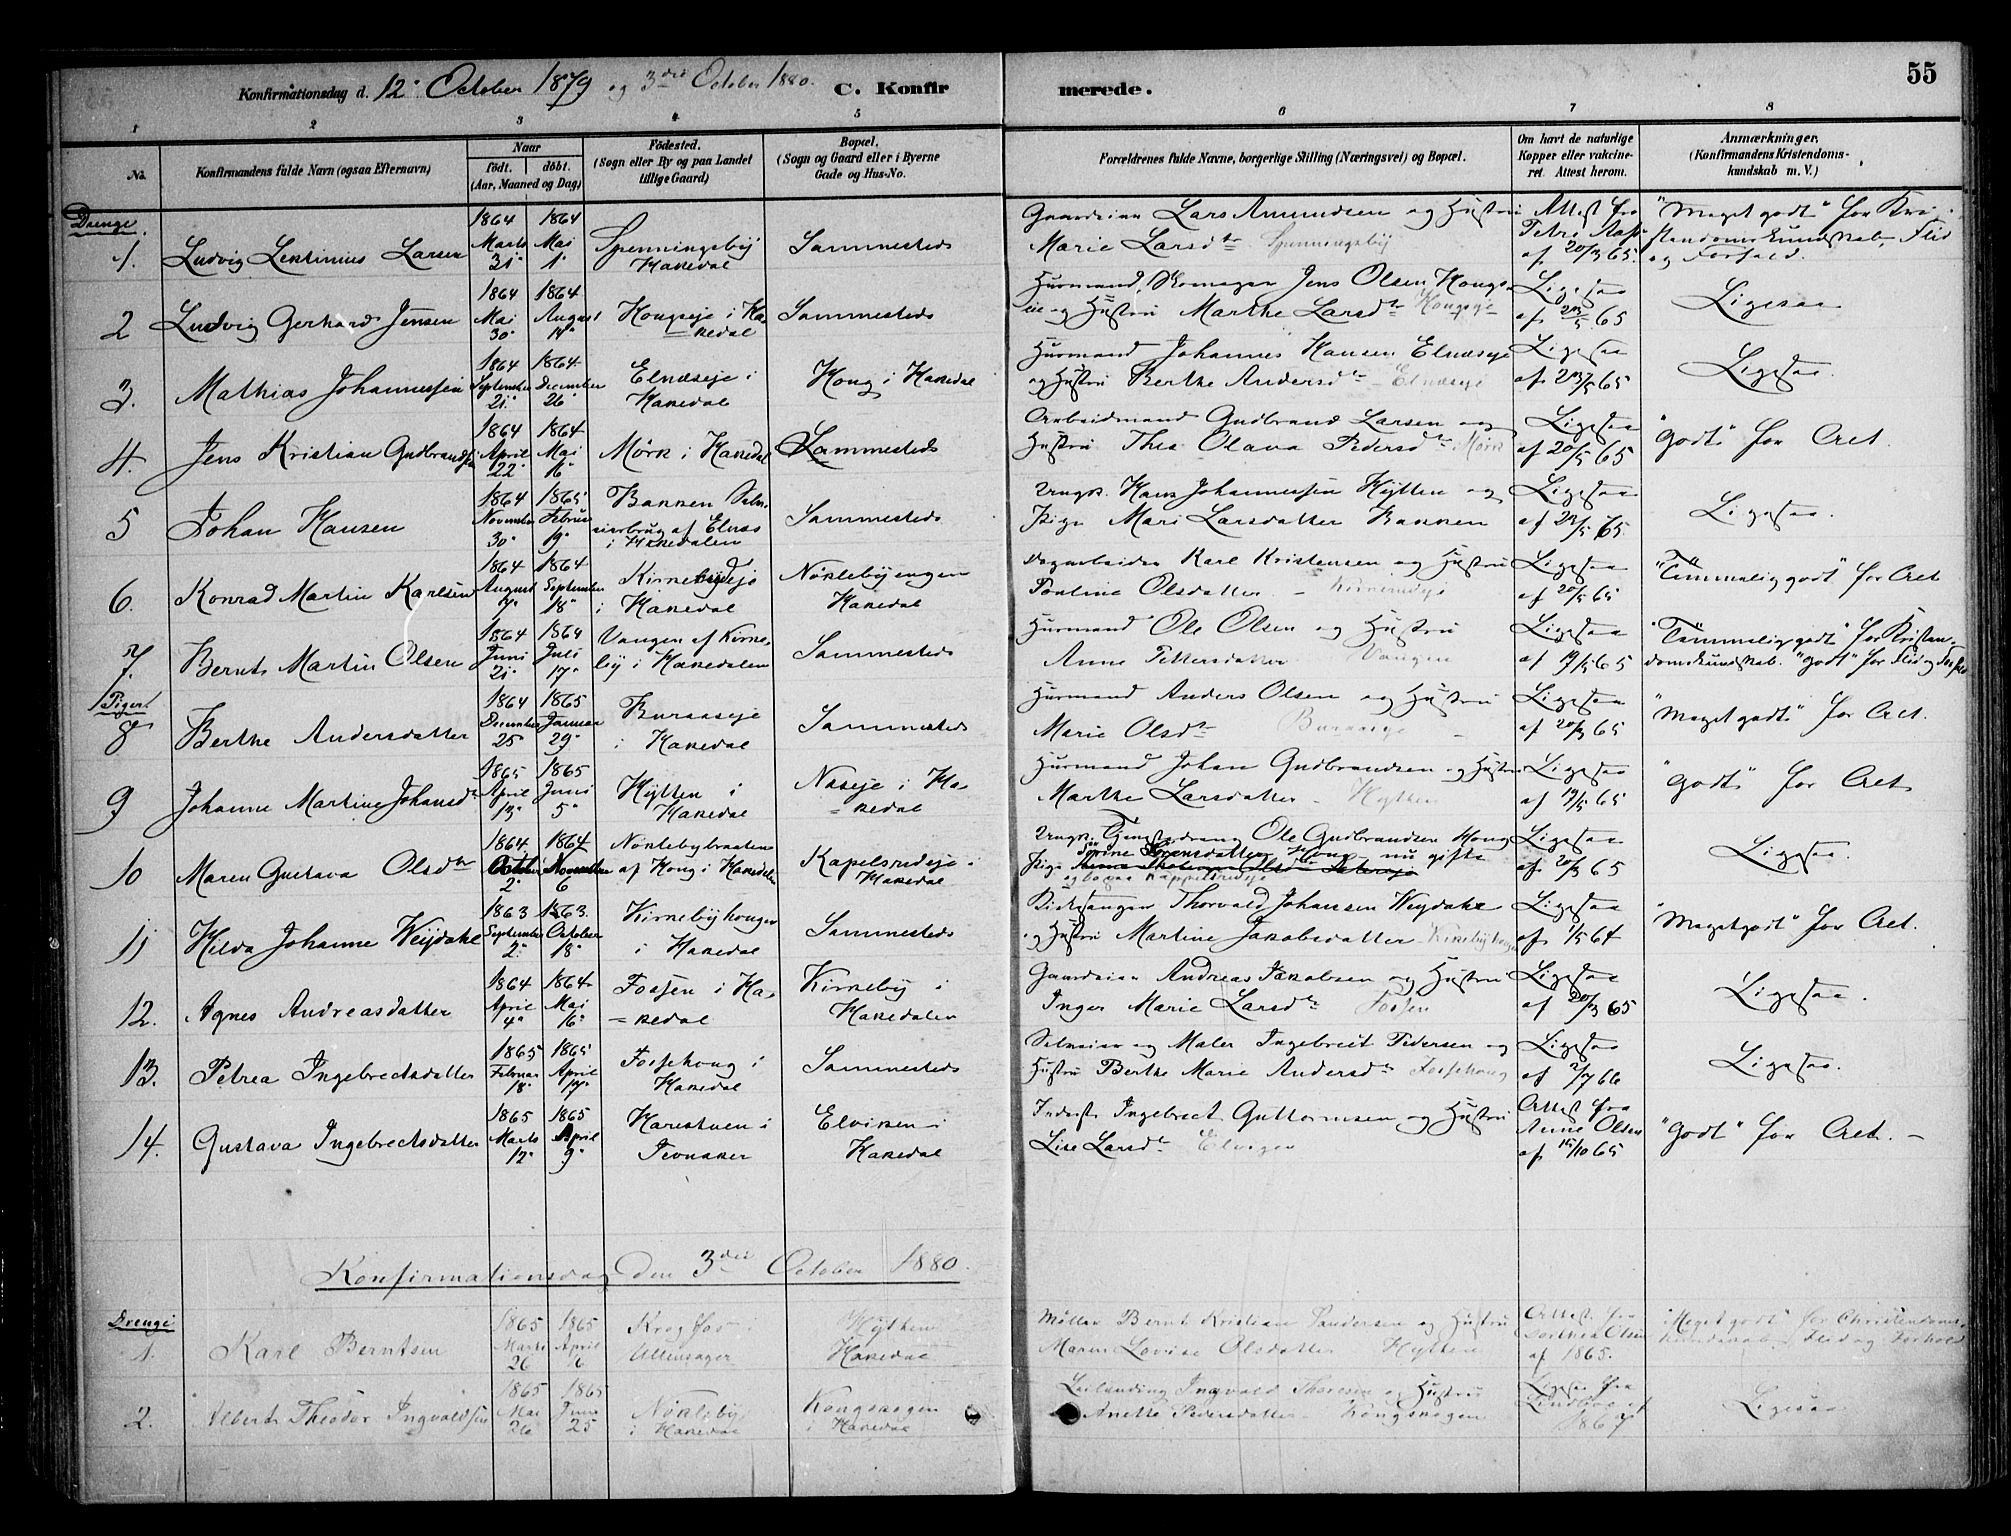 55
Konfirmationsdag d. 12. October 1879 og 3die October 1880. C. Konfirmerede.
1 2 3 4 5 6 7 8
No.
Konfirmandens fulde Navn (ogsaa Efternavn)
Naar født. døbt. (Aar, Maaned og Dag)
Fødested. (Sogn eller By og paa Landet tillige Gaard)
Bopæl. (Sogn og Gaard eller i Byerne Gade og Hus-No.
Forældrenes fulde Navne, borgerlige Stilling (Næringsvei) og Bopæl.
Om havt de naturlige Kopper eller vakcineret Attest herom.
Anmærkninger, (Konfirmandens Kristendomskundskab m. V.)
Drenge
1. Ludvig Lentinius Larsen 1864 Marts 31 1864 Mai 1 Spenningsby Hakedal Sammesteds Gaardeier Lars Amundsen og Hustru Marie Larsdtr Spenningsby Attest fra Petri af 20/3 65. "Meget godt" for Kristendomskundskab, Flid og Forhold.
2 Ludvig Gerhard Jensen 1864 Mai 30 1864 August 14 Hougseje i Hakedal Sammesteds Husmand, Skomager Jens Olsen Hougseie og Hustru Marthe Larsdtr Hougseje Ligesaa af 23/5 65 Ligesaa
3. Mathias Johannessen 1864 September 21. 1864. December 26 Elnæseje i Hakedal Houg i Hakedal Husmand Johannes Hansen Elnæseje og Hustru Berthe Andersdtr Elnæseje Ligesaa af 23/5 65 Ligesaa.
4. Jens Kristian Gudbrandsen 1864 April 22 1864 Mai 16 Mørk i Hakedal Sammesteds Arbeidsmand Gudbrand Larsen og Hustru Thea Olava Pedersdtr Mørk Ligesaa af 20/5 65 "Godt" for Alt.
5 Johan Hansen 1864 November 30 1865 Februar 19 Bakken Selveierbrug af Elnæs i Hakedalen Sammesteds Ungk. Hans Johannessen Hytten og Pige Mari Larsdatter Bakken Ligesaa af 23/5 65. Ligesaa.
6. Konrad Martin Karlsen 1864 August 7 1864 September 18 Kirkebyeje i Hakedal Nökleby engen Hakedal Dagarbeider Karl Kristensen og Hustru Pauline Olsdatter Ligesaa af 20/5 65 "Temmelig godt" for Alt
7. Bernt Martin Olsen 1864 Juni 21 1864 Juli 17 Vangen af Kirkeby i Hakedalen Sammesteds Husmand Ole Olsen og Hustru Anne Pettersdatter Vangen Ligesaa af 19/5 65 "Temmelig godt" for Kristendomskundskab. "godt" for Flid og Forhold
Piger.
8 Berthe Andersdatter 1864 December 25 1865 Januar 29 Buraaseje i Hakedal Sammesteds Husmand Anders Olsen og Hustru Marie Olsdtr Buraaseje Ligesaa af 20/3 65 "Meget godt" for Alt.
9 Johanne Martine Johansdtr 1865 April 13 1865 Juni 5 Hytten i Hakedal Naseje i Hakedal Husmand Johan Gudbrandsen og Hustru Marthe Larsdatter Hytten Ligesaa af 19/5 65 "Godt" for Alt
10 Maren Gustava Olsdtr 1864. October 2 1864 November 6 Nöklebybraaten af Houg i Hakedalen Kapelsrudeje i Hakedal Ungk. Tjenestedreng Ole Gudbrandsen Houg Pige Sörine Sörensdatter Houg nu gifte og bopaa Kappelsrudeje Ligesaa af 20/3 65 Ligesaa.
11 Hilda Johanne Weydahl 1863 September 2 1863. October 18 Kirkebyhougen i Hakedal Sammesteds Kirkesanger Thorvald Johansen Weydahl og Hustru Martine Jakobsdatter Kirkebyhougen Ligesaa af 1/5 64 "Meget godt" for Alt.
12. Agnes Andreasdatter 1864 April 4 1864 Mai 16 Fossen i Hakedal Kirkeby i Hakedalen Gaardeier Andreas Jakobsen og Hustru Inger Marie Larsdtr Fossen Ligesaa af 20/3 65 Ligesaa.
13. Petrea Ingebretsdatter 1865 Februar 18 1865 April 17 Fossehoug i Hakedal Sammesteds Selveier og Maler Ingebret Pedersen og Hustru Berthe Marie Andersdtr Fossehoug Ligesaa af 2/7 66 Ligesaa.
14. Gustava Ingebretsdatter 1865 Marts 12 1865 April 9 Harestuen i Jevnaker Elviken i Hakedal Inderst Ingebret Guttormsen og Hustru Lise Larsdtr Elvigen Attest fra Anne Olsen af 15/10 65 "Godt" for Alt.
Konfirmationsdag den 3die October 1880.
Drenge
1. Karl Berntsen 1865 Marts 26 1865 April 16 Krogfos i Ullensager Hytten Hakedal Møller Bernt Kristian Pandersen og Hustru Maren Lovise Olsdatter Hytten Attest fra Dorthea Olsen af 1865. "Meget godt" for Christendomskundskab, Flid og Forhold
2. Albert Theodor Ingvaldsen 1865 Mai 26 1865 Juni 25 Nökleby i Hakedal Kongskogen i Hakedal Leilending Ingvald Thoresen og Hustru Anette Pedersdatter Kongskogen Ligesaa fra Lindboe af 1867 Ligesaa